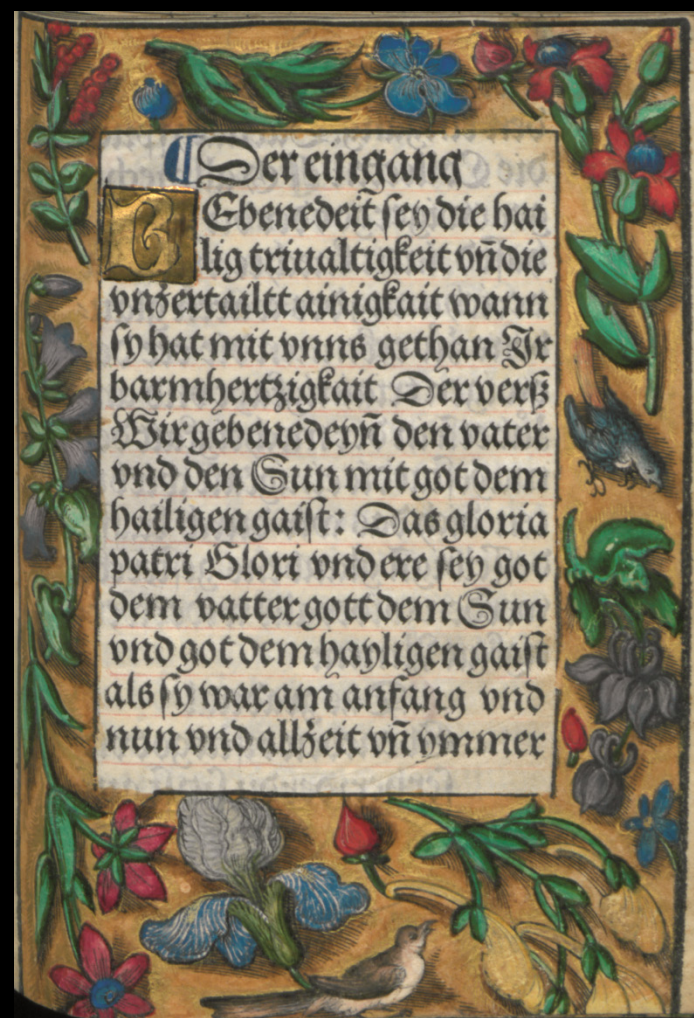 ¶ Der eingang
GEbenedeit̃ ſey die hai
lig triualtigkeit vñ die
vnzertailtt ainigkait wann
ſy hat mit vnns gethan Ir
barmhertzigkait Der verß
Wir gebenedeyñ den vater
vnd den Sun mit got dem
hailigen gaiſt: Das gloria
patri Glori vnd ere ſey got
dem vatter gott dem Sun
vnd got dem hayligen gaiſt
als ſy war am anfang vnd
nun vnd allzeit vñ ymmer